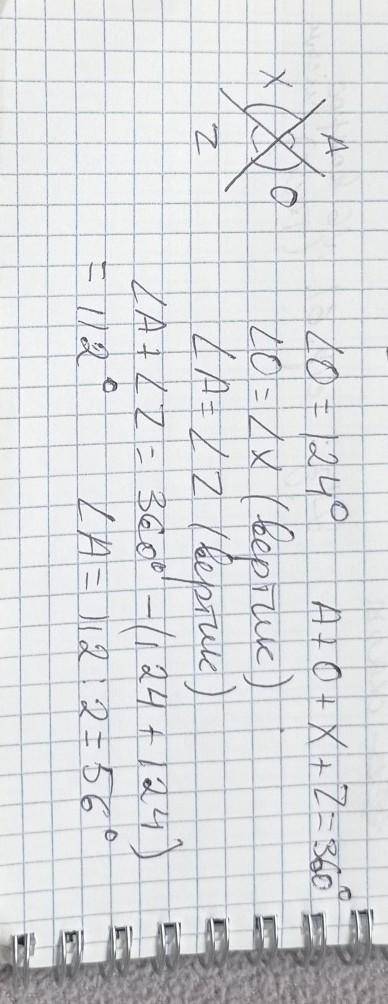 A
X
O
Z
∠O = 124° A + O + X + Z = 360°
∠O = ∠X (вертик)
∠A = ∠Z (вертик)
∠A + ∠Z = 360° - (124 + 124)
= 112° ∠A = 112 : 2 = 56°